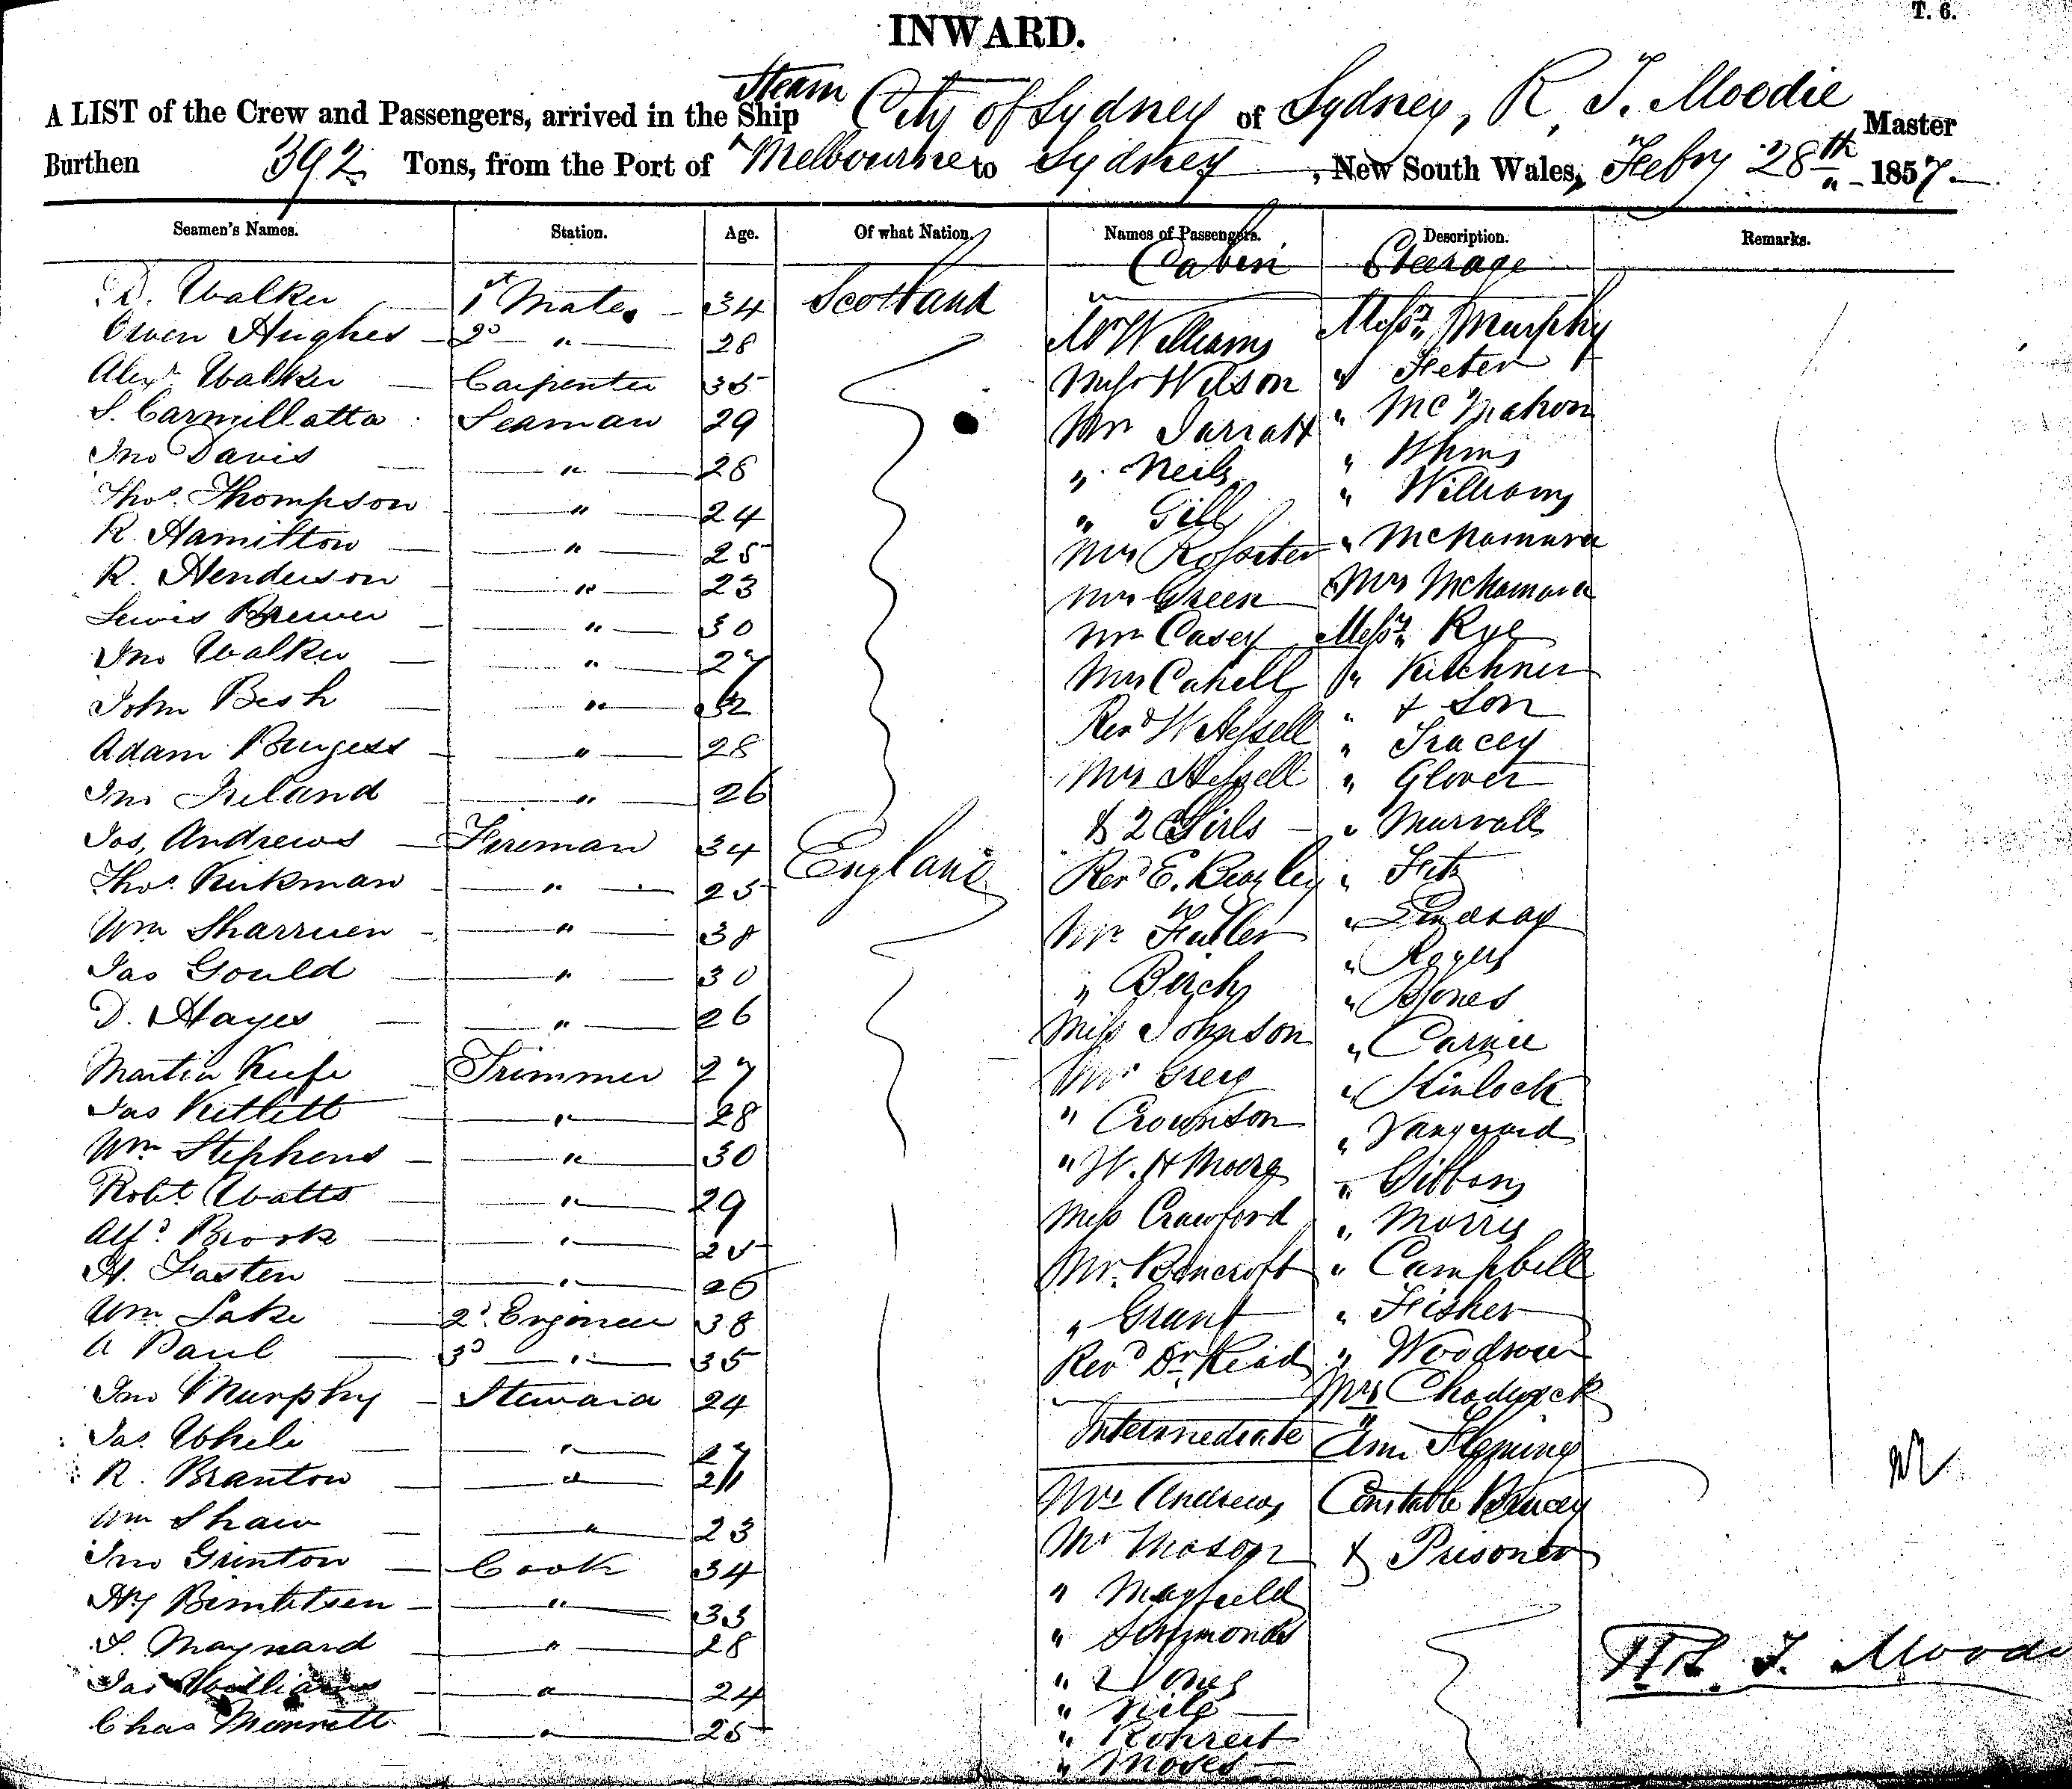 T. 6.
INWARD.
A LIST of the Crew and Passengers, arrived in the Steam Ship City of Sydney of Sydney, R. T. Moodie Master
Burthen 392 Tons, from the Port of Melbourne to Sydney, New South Wales, Feby 28th 1857.
Seamen's Names. Station. Age. Of what Nation. Names of Passengers. Description. Remarks.
Cabin Steerage
D. Walker 1st Mate 34 Scotland
Owen Hughes 2d " 28
Alexr Walker Carpenter 35
S. Carmillatta Seaman 29
Jno Davis " 28
Thos Thompson " 24
R. Hamilton " 25
R. Henderson " 23
Lewis Brewer " 30
Jno Walker " 27
John Besh " 32
Adam Burgess " 28
Jno Ireland " 26
Jos. Andrews Fireman 34 England
Thos Kirkman " 25
Wm Sharruen " 38
Jas Gould " 30
D. Hayes " 26
Martin Keefe Trimmer 27
Jas Kettlett " 28
Wm Stephens " 30
Robt Watts " 29
Alfd Brook " 25
H. Fasten " 26
Wm Lake 2d Engineer 38
A Paul 3d " 35
Jno Murphy Steward 24
Jas. " 27
R. Branton " 21
Wm Shaw " 23
Jno Grinton Cook 34
Hy " 33
S. Maynard " 28
Jas Williams " 24
Chas Monnett " 25
Mr Williams
Miss Wilson
Mr Jarratt
" Neils
" Gill
Mrs Rossiter
Mrs Green
Mr Casey
Mrs Cahell
Revd W Hessell
Mrs Hessell
& 2 Girls
Revd E. Bagley
Mr Fuller
" Birch
Miss Johnson
Mr Greig
" Crownson
" W. H Moore
Miss Crawford
Mr. Bancroft
" Grant
Revd Dr. Read
Intermediate
Mrs Andrews
Mr Mason
" Mayfield
" Simmonds
" Jones
" Nile
" Rohreit
" Moses
Messrs Murphy
" Feter
" McMahon
" Williams
" McNamara
Mrs McNamara
Messrs Rye
" Kirchner
" & Son
" Tracey
" Glover
" Murvall
" Fitz
" Lindsay
" Rogers
" Jones
" Carnie
" Kinlock
" Vanguard
" Gibbons
" Morris
" Campbell
" Fisher
" Woodrow
Mrs Chadwick
Ann Fleming
Constable
& Prisoner
R. T. Moodie